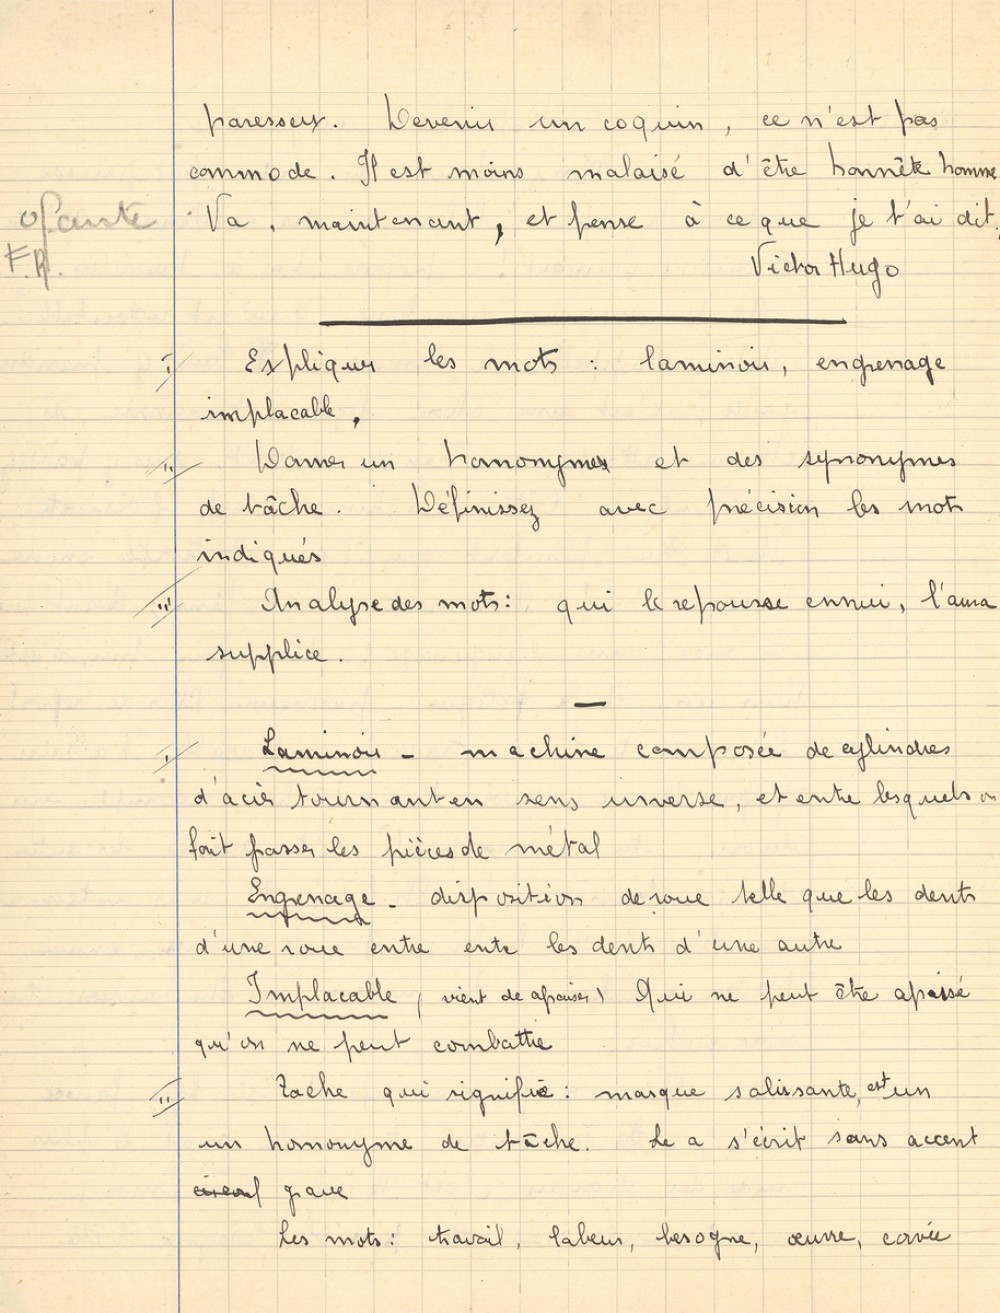 paresseux. Devenir un coquin, ce n'est pas
commode. Il est moins malaisé d'être honnête homme
Va, maintenant, et pense à ce que je t'ai dit.
Victor Hugo
F.R.
I Expliquer les mots : laminoir, engrenage
implacable,
II Donner un homonymes et des synonymes
de tâche. Définissez avec précision les mots
indiqués
III Analyse des mots : qui le repousse ennui, l'aura
supplice.
I Laminoir - machine composée de cylindres
d'acier tournant en sens inverse, et entre lesquels on
fait passer les pièces de métal
Engrenage - disposition de roue telle que les dents
d'une roue entre entre les dents d'une autre
Implacable (vient de apaiser) Qui ne peut être apaisé
qu'on ne peut combattre
II Tache qui signifie : marque salissante, est un
un homonyme de tâche. Le a s'écrit sans accent
circonf grave
Les mots : travail, labeur, besogne, œuvre, corvée